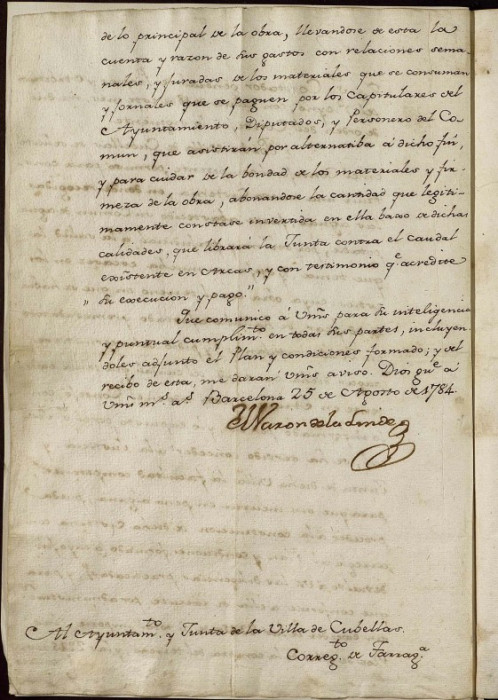 de lo principal de la obra, llevandose de esta la
cuenta y razon de sus gastos con relaciones sema-
nales, y juradas de los materiales que se consuman
y jornales que se paguen por los Capitulares del
Ayuntamiento, Diputados, y Personero del Co-
mun, que asistirán por alternatiba á dicho fin,
y para cuidar de la bondad de los materiales y fir-
meza de la obra, abonandose la cantidad que legiti-
mamente constase invertida en ella baxo de dichas
calidades, que librará la Junta contra el Caudal
existente en Arcas, y con testimonio qe. acredite
" su execucion y pago."
Que comunico á Vms para su inteligencia
y puntual cumplimto. en todas sus partes, incluyen
doles adjunto el Plan y condiciones formado; y del
recibo de esta, me darán Vms aviso. Dios gue. á
Vms ms. as. Barcelona 25 de Agosto de 1784.
El Varon de la Linde
Al Ayuntamto. y Junta de la Villa de Cubellas.
Corregto. de Tarraga.